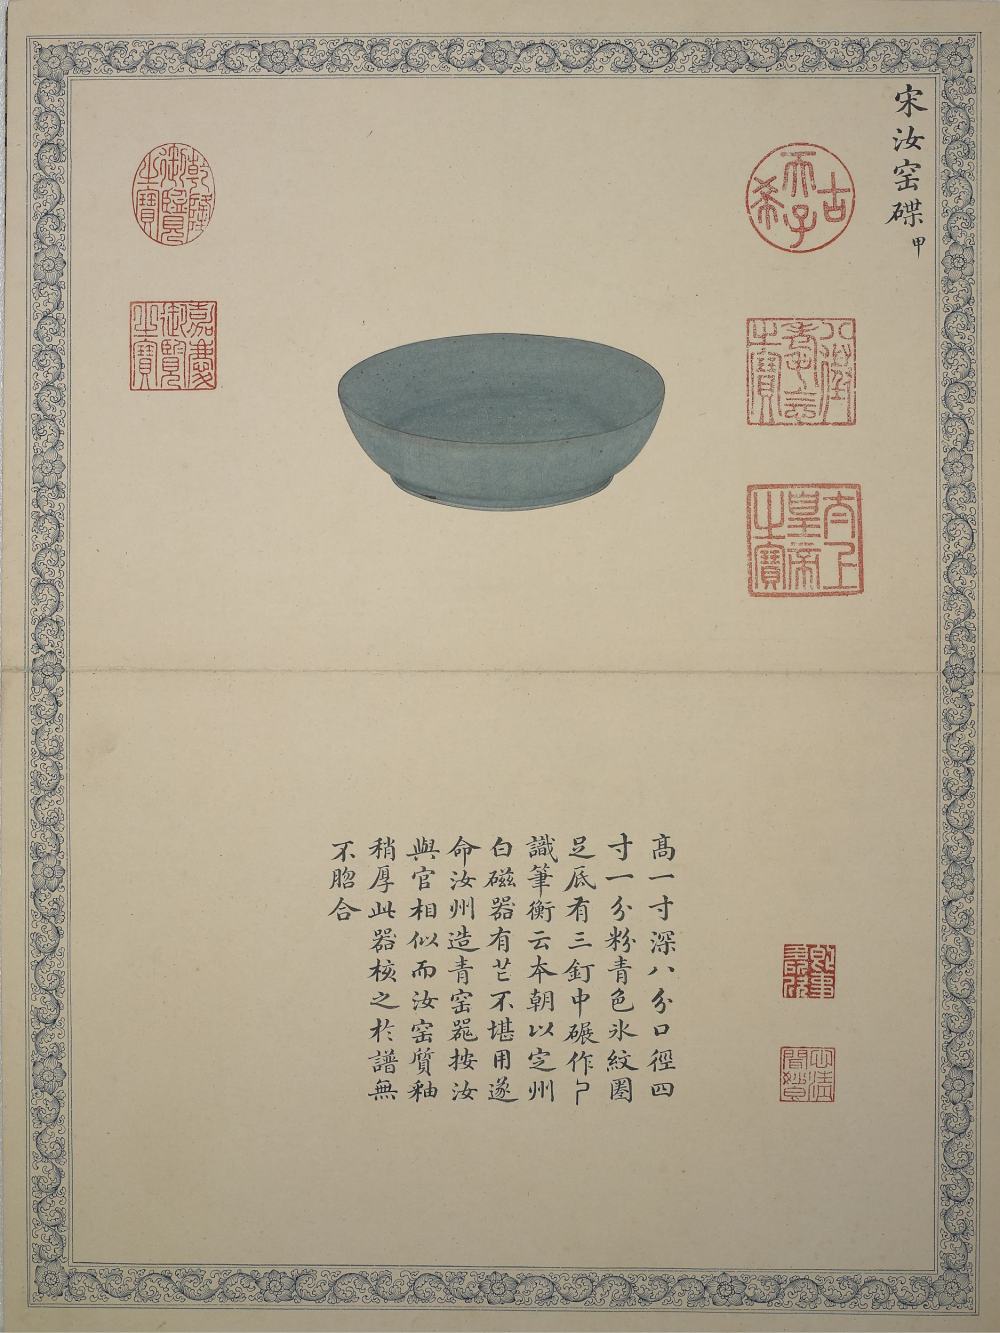 宋汝窑碟 甲
古希天子
八徵耄念之寶
太上皇帝之寶
乾隆御覽之寶
嘉慶御覽之寶
高一寸深八分口徑四
寸一分粉青色氷紋圈
足底有三釘中碾作
識筆衡云本朝以定州
白磁器有芒不堪用遂
命汝州造青窑噐按汝
與官相似而汝窑質釉
稍厚此器核之於譜無
不脗合